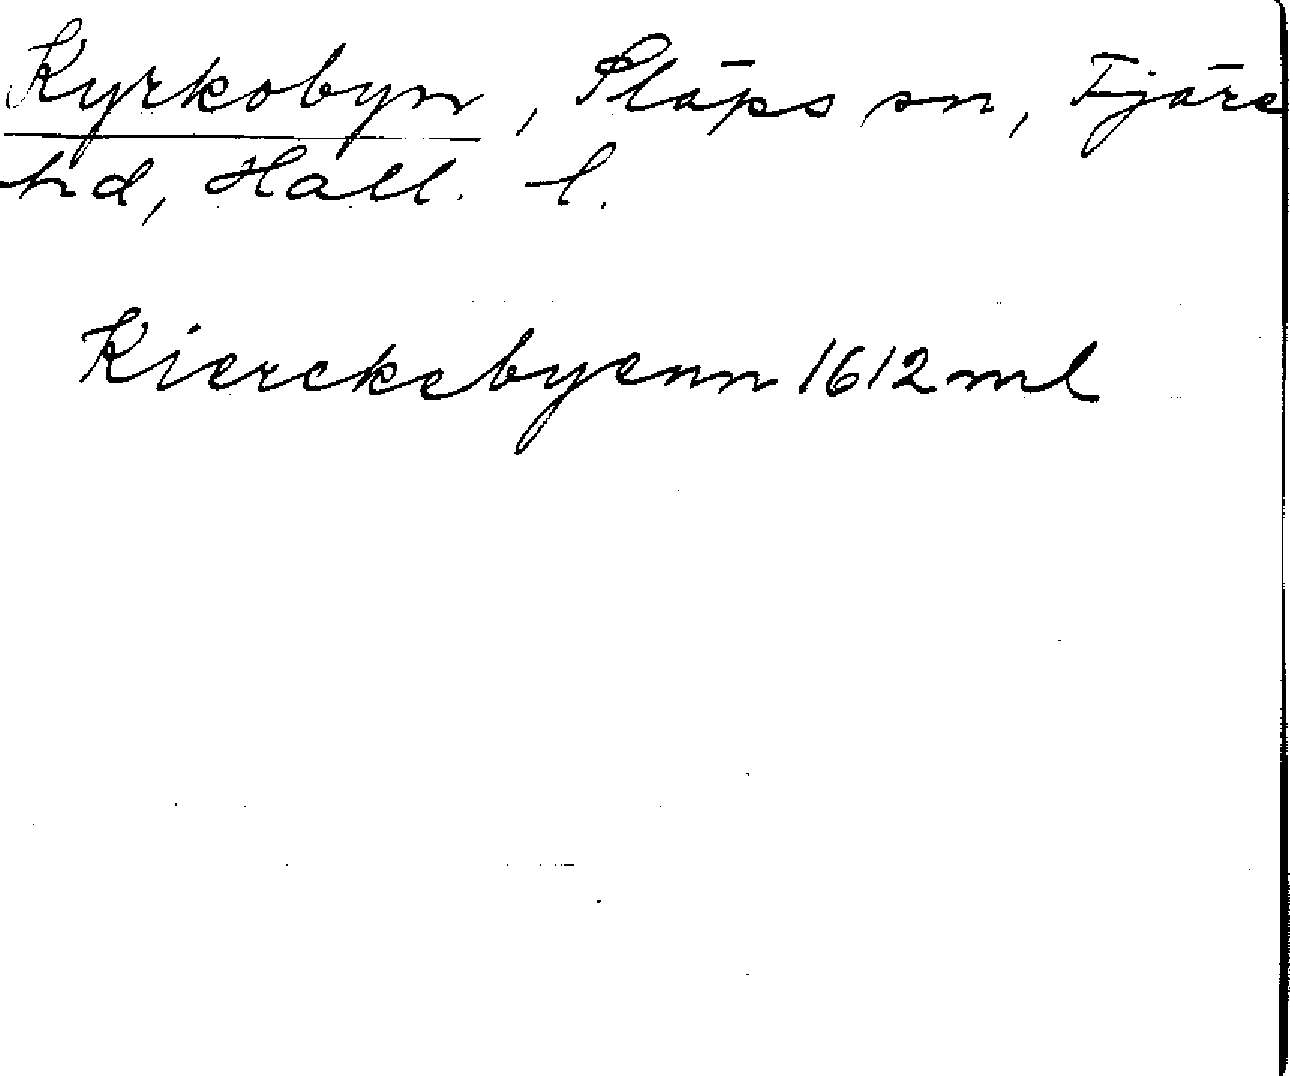 Kyrkobyn, Släps sn, Fjäre
hd, Hall. l.
Kierckebyenn 1612 ml